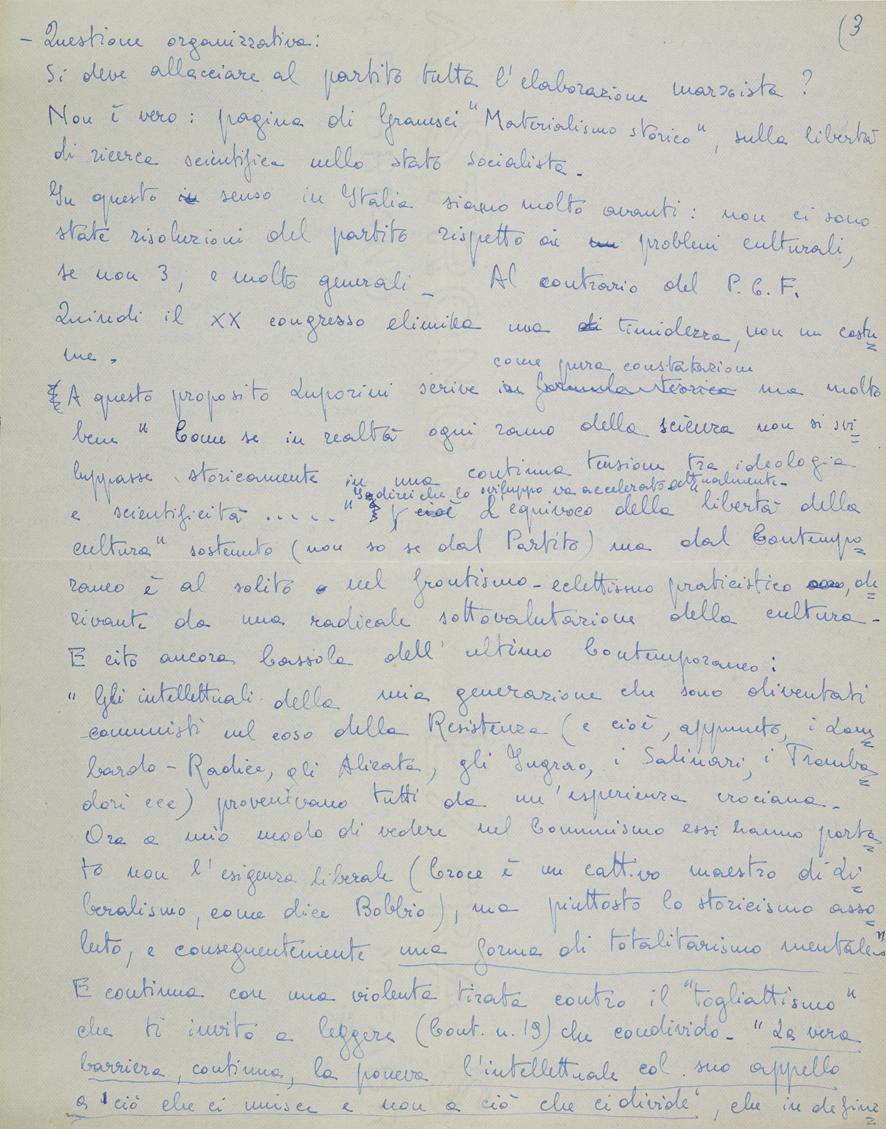 (3
- Questione organizzativa:
Si deve allacciare al partito tutta l'elaborazione marxista ?
Non è vero : pagina di Gramsci "Materialismo storico", sulla libertà
di ricerca scientifica nello stato socialista.
In questo in senso in Italia siamo molto avanti : non ci sono
state risoluzioni del partito rispetto ai un problemi culturali,
se non 3, e molto generali - Al contrario del P.C.F.
Quindi il XX congresso elimina una di timidezza, non un costu=
me.
come pura constatazione
A questo proposito Luporini scrive in formula teorica ma molto
bene " Come se in realtà ogni ramo della scienza non si svi=
luppasse storicamente in una continua tensione tra ideologia
"Io direi che lo sviluppo va accelerato attualmente.
e scientificità ..... " cioè L'equivoco della "libertà della
cultura" sostenuto (non so se dal Partito) ma dal Contempo=
raneo è al solito e nel frontismo-eclettismo praticistico, de=
rivante da una radicale sottovalutazione della cultura.
E cito ancora Cassola dell'ultimo Contemporaneo:
" Gli intellettuali della mia generazione che sono diventati
comunisti nel corso della Resistenza (e cioè, appunto, i Lom=
bardo-Radice, gli Alicata, gli Ingrao, i Salinari, i Tromba=
dori ecc) provenivano tutti da un'esperienza crociana.
Ora a mio modo di vedere nel Comunismo essi hanno porta=
to non l'esigenza liberale (Croce è un cattivo maestro di Li=
beralismo, come dice Bobbio), ma piuttosto lo storicismo asso=
luto, e conseguentemente una forma di totalitarismo mentale"
E continua con una violenta tirata contro il "togliattismo"
che ti invito a leggere (Cont. n. 19) che condivido - "La vera
barriera, continua, la poneva l'intellettuale col suo appello
a 'ciò che ci unisce e non a ciò che ci divide', che in defini=